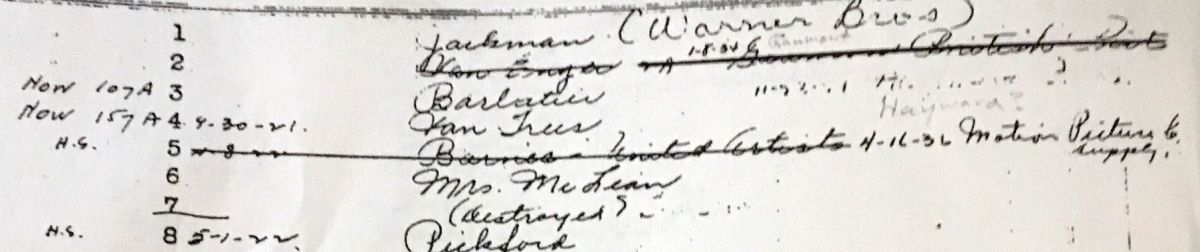 1 Jackman (Warner Bros)
2 Van Enger 1-8-34 Gaumont British
Now 107A 3 Barlatier
Now 157A 4 9-30-21. Van Trees Hayward?
H.S. 5 Barnes - United Artists 4-16-36 Motion Picture
supply.
6 Mrs. McLean
7 (destroyed?)
H.S. 8 5-1-22 Pickford